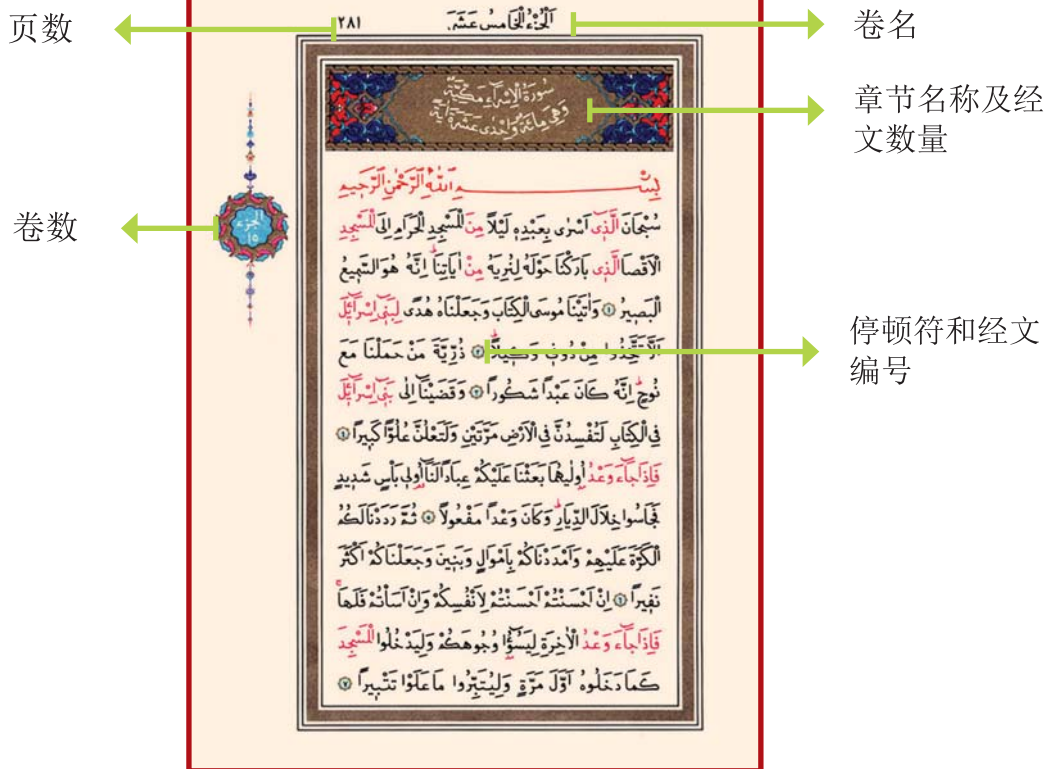 页数
٢٨١
اَلْجُزْءُ الْخَامِسُ عَشَرَ
卷名
سُورَةُ الْاِسْرَٓاءِ مَكِّيَّةٌ
وَهِيَ مِائَةٌ وَاِحْدٰى عَشْرَةَ اٰيَةً
章节名称及经
文数量
بِسْــــــــــــــــمِ اللّٰهِ الرَّحْمٰنِ الرَّحٖيمِ
卷数
الجزء
١٥
سُبْحَانَ الَّذٖٓي اَسْرٰى بِعَبْدِهٖ لَيْلًا مِنَ الْمَسْجِدِ الْحَرَامِ اِلَى الْمَسْجِدِ
الْاَقْصَا الَّذٖي بَارَكْنَا حَوْلَهُ لِنُرِيَهُ مِنْ اٰيَاتِنَاۜ اِنَّهُ هُوَ السَّمٖيعُ
الْبَصٖيرُ ﴿١﴾ وَاٰتَيْنَا مُوسَى الْكِتَابَ وَجَعَلْنَاهُ هُدًى لِبَنٖٓي اِسْرَٓائٖلَ
اَلَّا تَتَّخِذُوا مِنْ دُونٖي وَكٖيلًاۜ ﴿٢﴾ ذُرِّيَّةَ مَنْ حَمَلْنَا مَعَ
停顿符和经文
编号
نُوحٍۜ اِنَّهُ كَانَ عَبْدًا شَكُورًا ﴿٣﴾ وَقَضَيْنَٓا اِلٰى بَنٖٓي اِسْرَٓائٖلَ
فِي الْكِتَابِ لَتُفْسِدُنَّ فِي الْاَرْضِ مَرَّتَيْنِ وَلَتَعْلُنَّ عُلُوًّا كَبٖيرًا ﴿٤﴾
فَاِذَا جَٓاءَ وَعْدُ اُو۫لٰيهُمَا بَعَثْنَا عَلَيْكُمْ عِبَادًا لَنَٓا اُو۬لٖي بَأْسٍ شَدٖيدٍ
فَجَاسُوا خِلَالَ الدِّيَارِۜ وَكَانَ وَعْدًا مَفْعُولًا ﴿٥﴾ ثُمَّ رَدَدْنَا لَكُمُ
الْكَرَّةَ عَلَيْهِمْ وَاَمْدَدْنَاكُمْ بِاَمْوَالٍ وَبَنٖينَ وَجَعَلْنَاكُمْ اَكْثَرَ
نَفٖيرًا ﴿٦﴾ اِنْ اَحْسَنْتُمْ اَحْسَنْتُمْ لِاَنْفُسِكُمْ وَاِنْ اَسَأْتُمْ فَلَهَاۜ
فَاِذَا جَٓاءَ وَعْدُ الْاٰخِرَةِ لِيَسُٓؤُ۫ا وُجُوهَكُمْ وَلِيَدْخُلُوا الْمَسْجِدَ
كَمَا دَخَلُوهُ اَوَّلَ مَرَّةٍ وَلِيُتَبِّرُوا مَا عَلَوْا تَتْبٖيرًا ﴿٧﴾